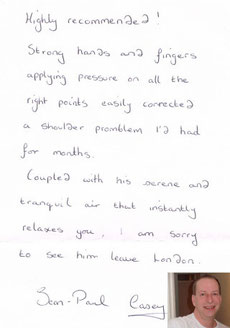 Highly recommended!
Strong hands and fingers
applying pressure on all the
right points easily corrected
a shoulder promblem I'd had
for months.
Coupled with his serene and
tranquil air that instantly
relaxes you, I am sorry
to see him leave London.
Jean-Paul Casey